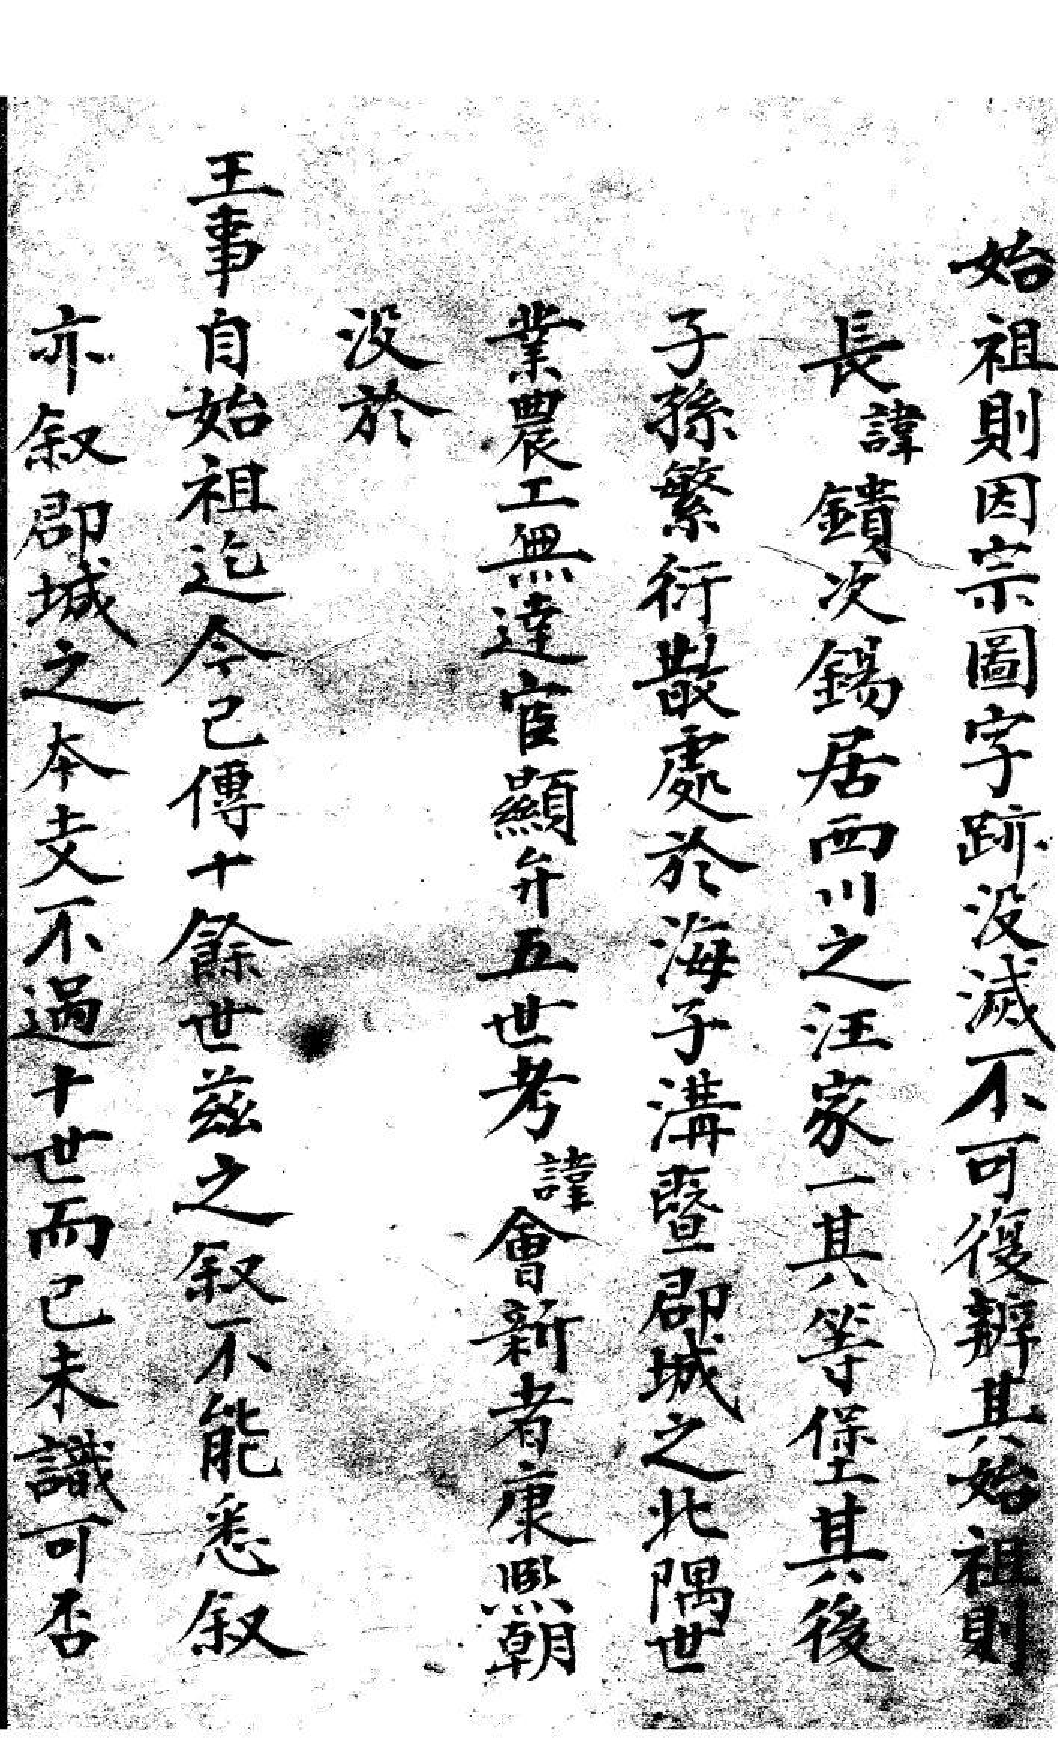 始祖則因宗圖字跡没滅不可復辨其始祖則
長諱鐀次錫居西川之汪家一其等堡其後
子孫繁衍散處於海子溝曁郡城之北隅世
業農工無達宦顯弁五世考諱會新者康熙朝
没於
王事自始祖迄今已傳十餘世兹之叙不能悉叙
亦叙郡城之本支不過十世而已未識可否